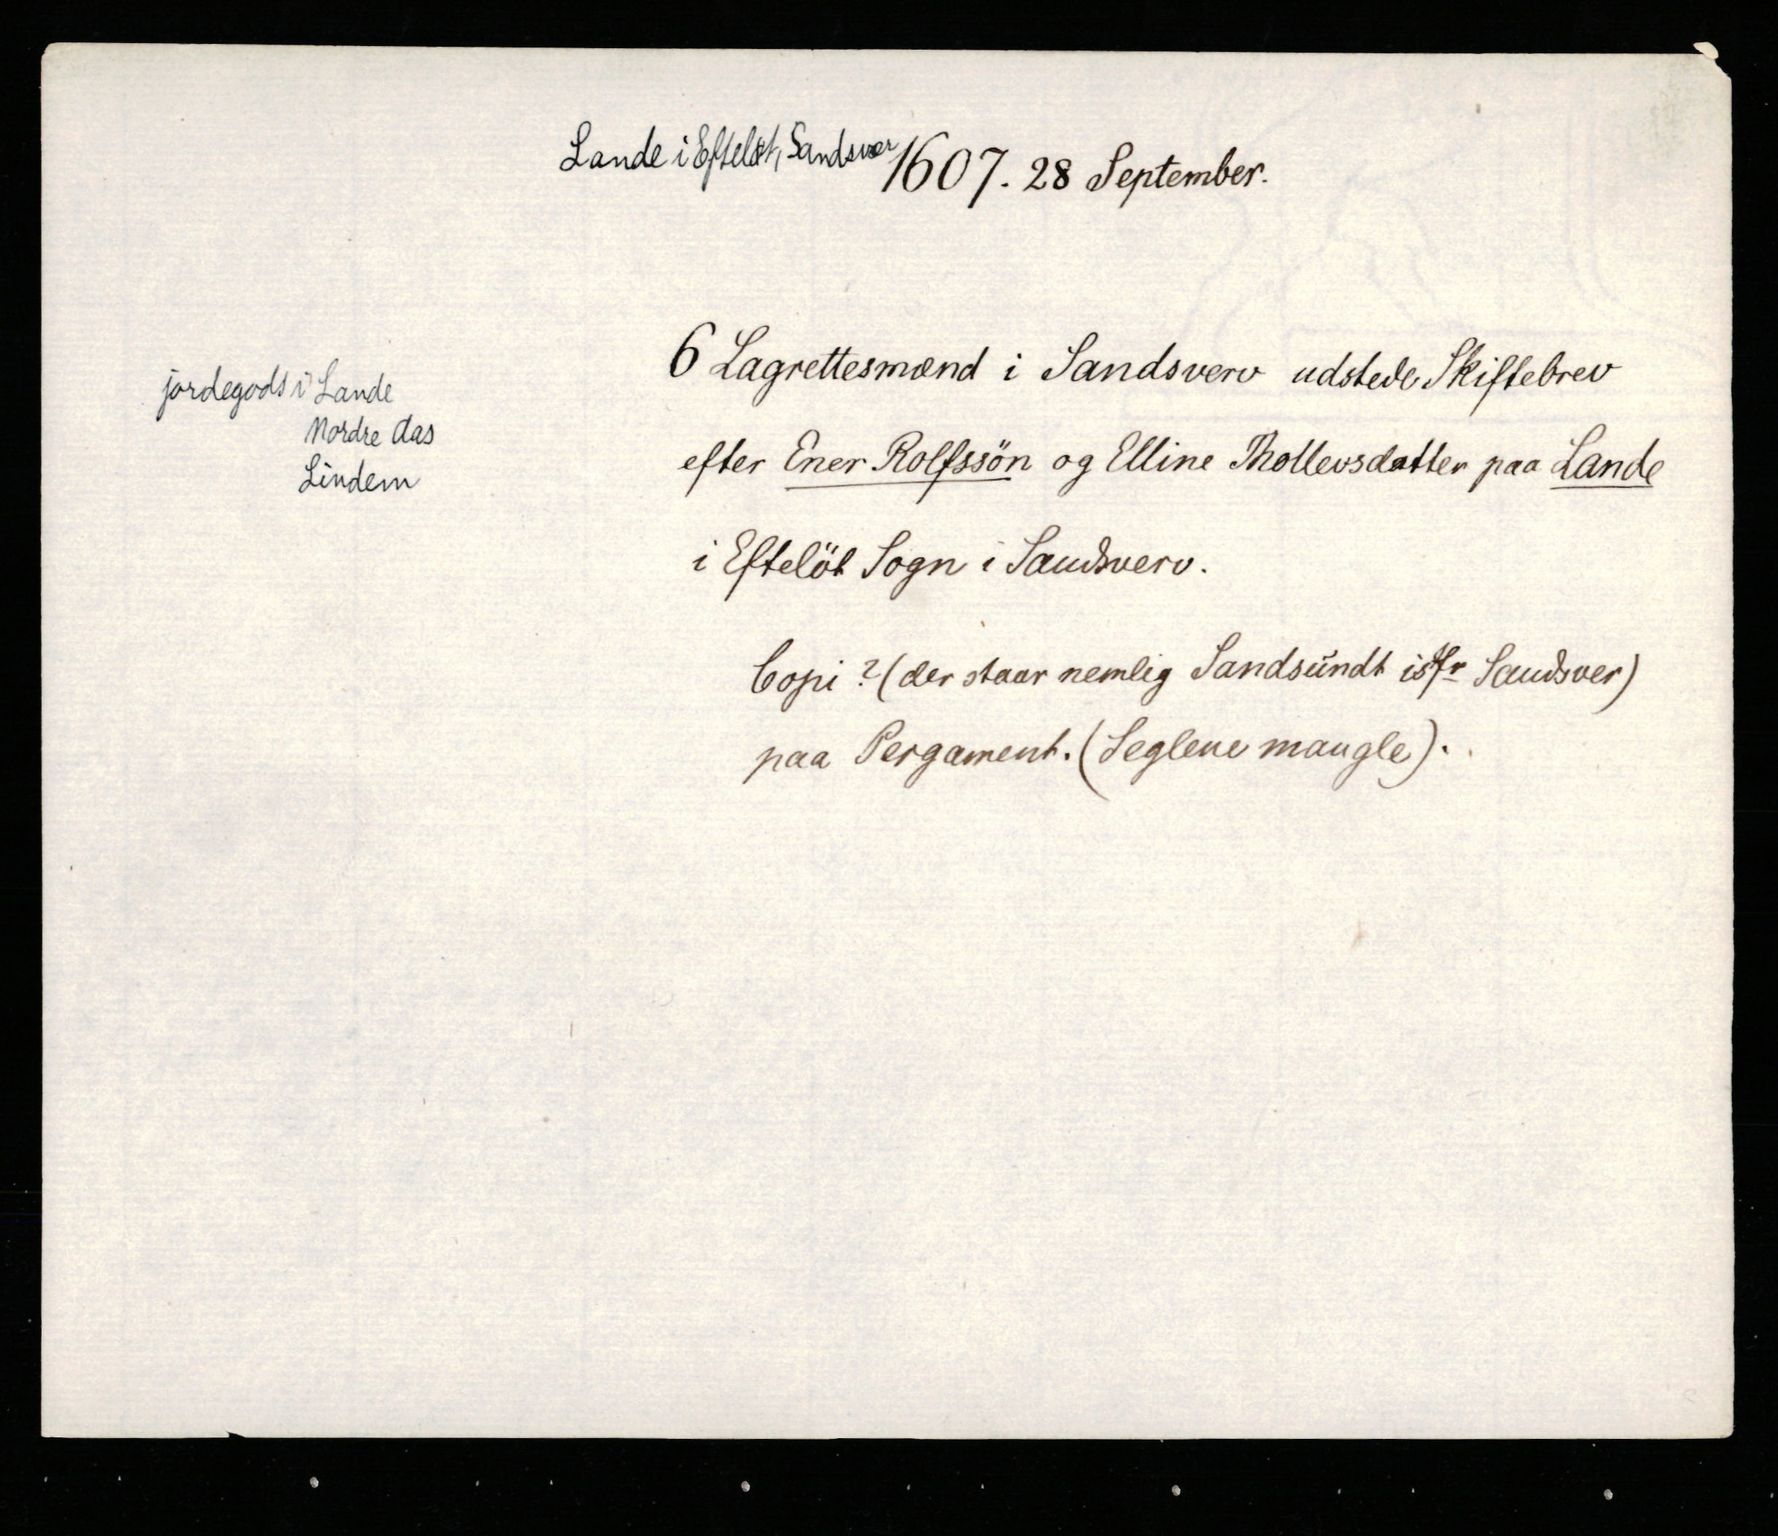 Lande i Efteløt, Sandsvær 1607. 28 September.
jordegods i Lande
Nordre Aas
Lindem
6 Lagrettesmænd i Sandsverv udstede Skiftebrev
efter Ener Rolfssön og Elline Thollevsdatter paa Lande
i Eftelöt Sogn i Sandsverv.
Copi? (der staar nemlig Sandsundt istfr Sandsver)
paa Pergament. (Seglene mangle).